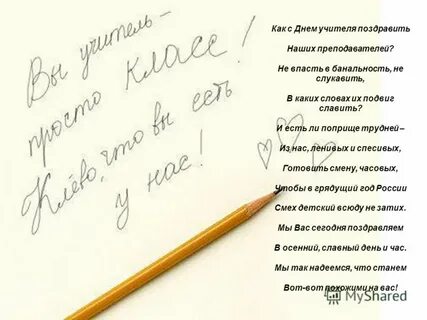 Вы учитель –
просто класс!
Клёво, что вы есть
у нас!
Как с Днем учителя поздравить
Наших преподавателей?
Не впасть в банальность, не
слукавить,
В каких словах их подвиг
славить?
И есть ли поприще трудней–
Из нас, ленивых и спесивых,
Готовить смену, часовых,
Чтобы в грядущий год России
Смех детский всюду не затих.
Мы Вас сегодня поздравляем
В осенний, славный день и час.
Мы так надеемся, что станем
Вот-вот похожими на вас!
MyShared